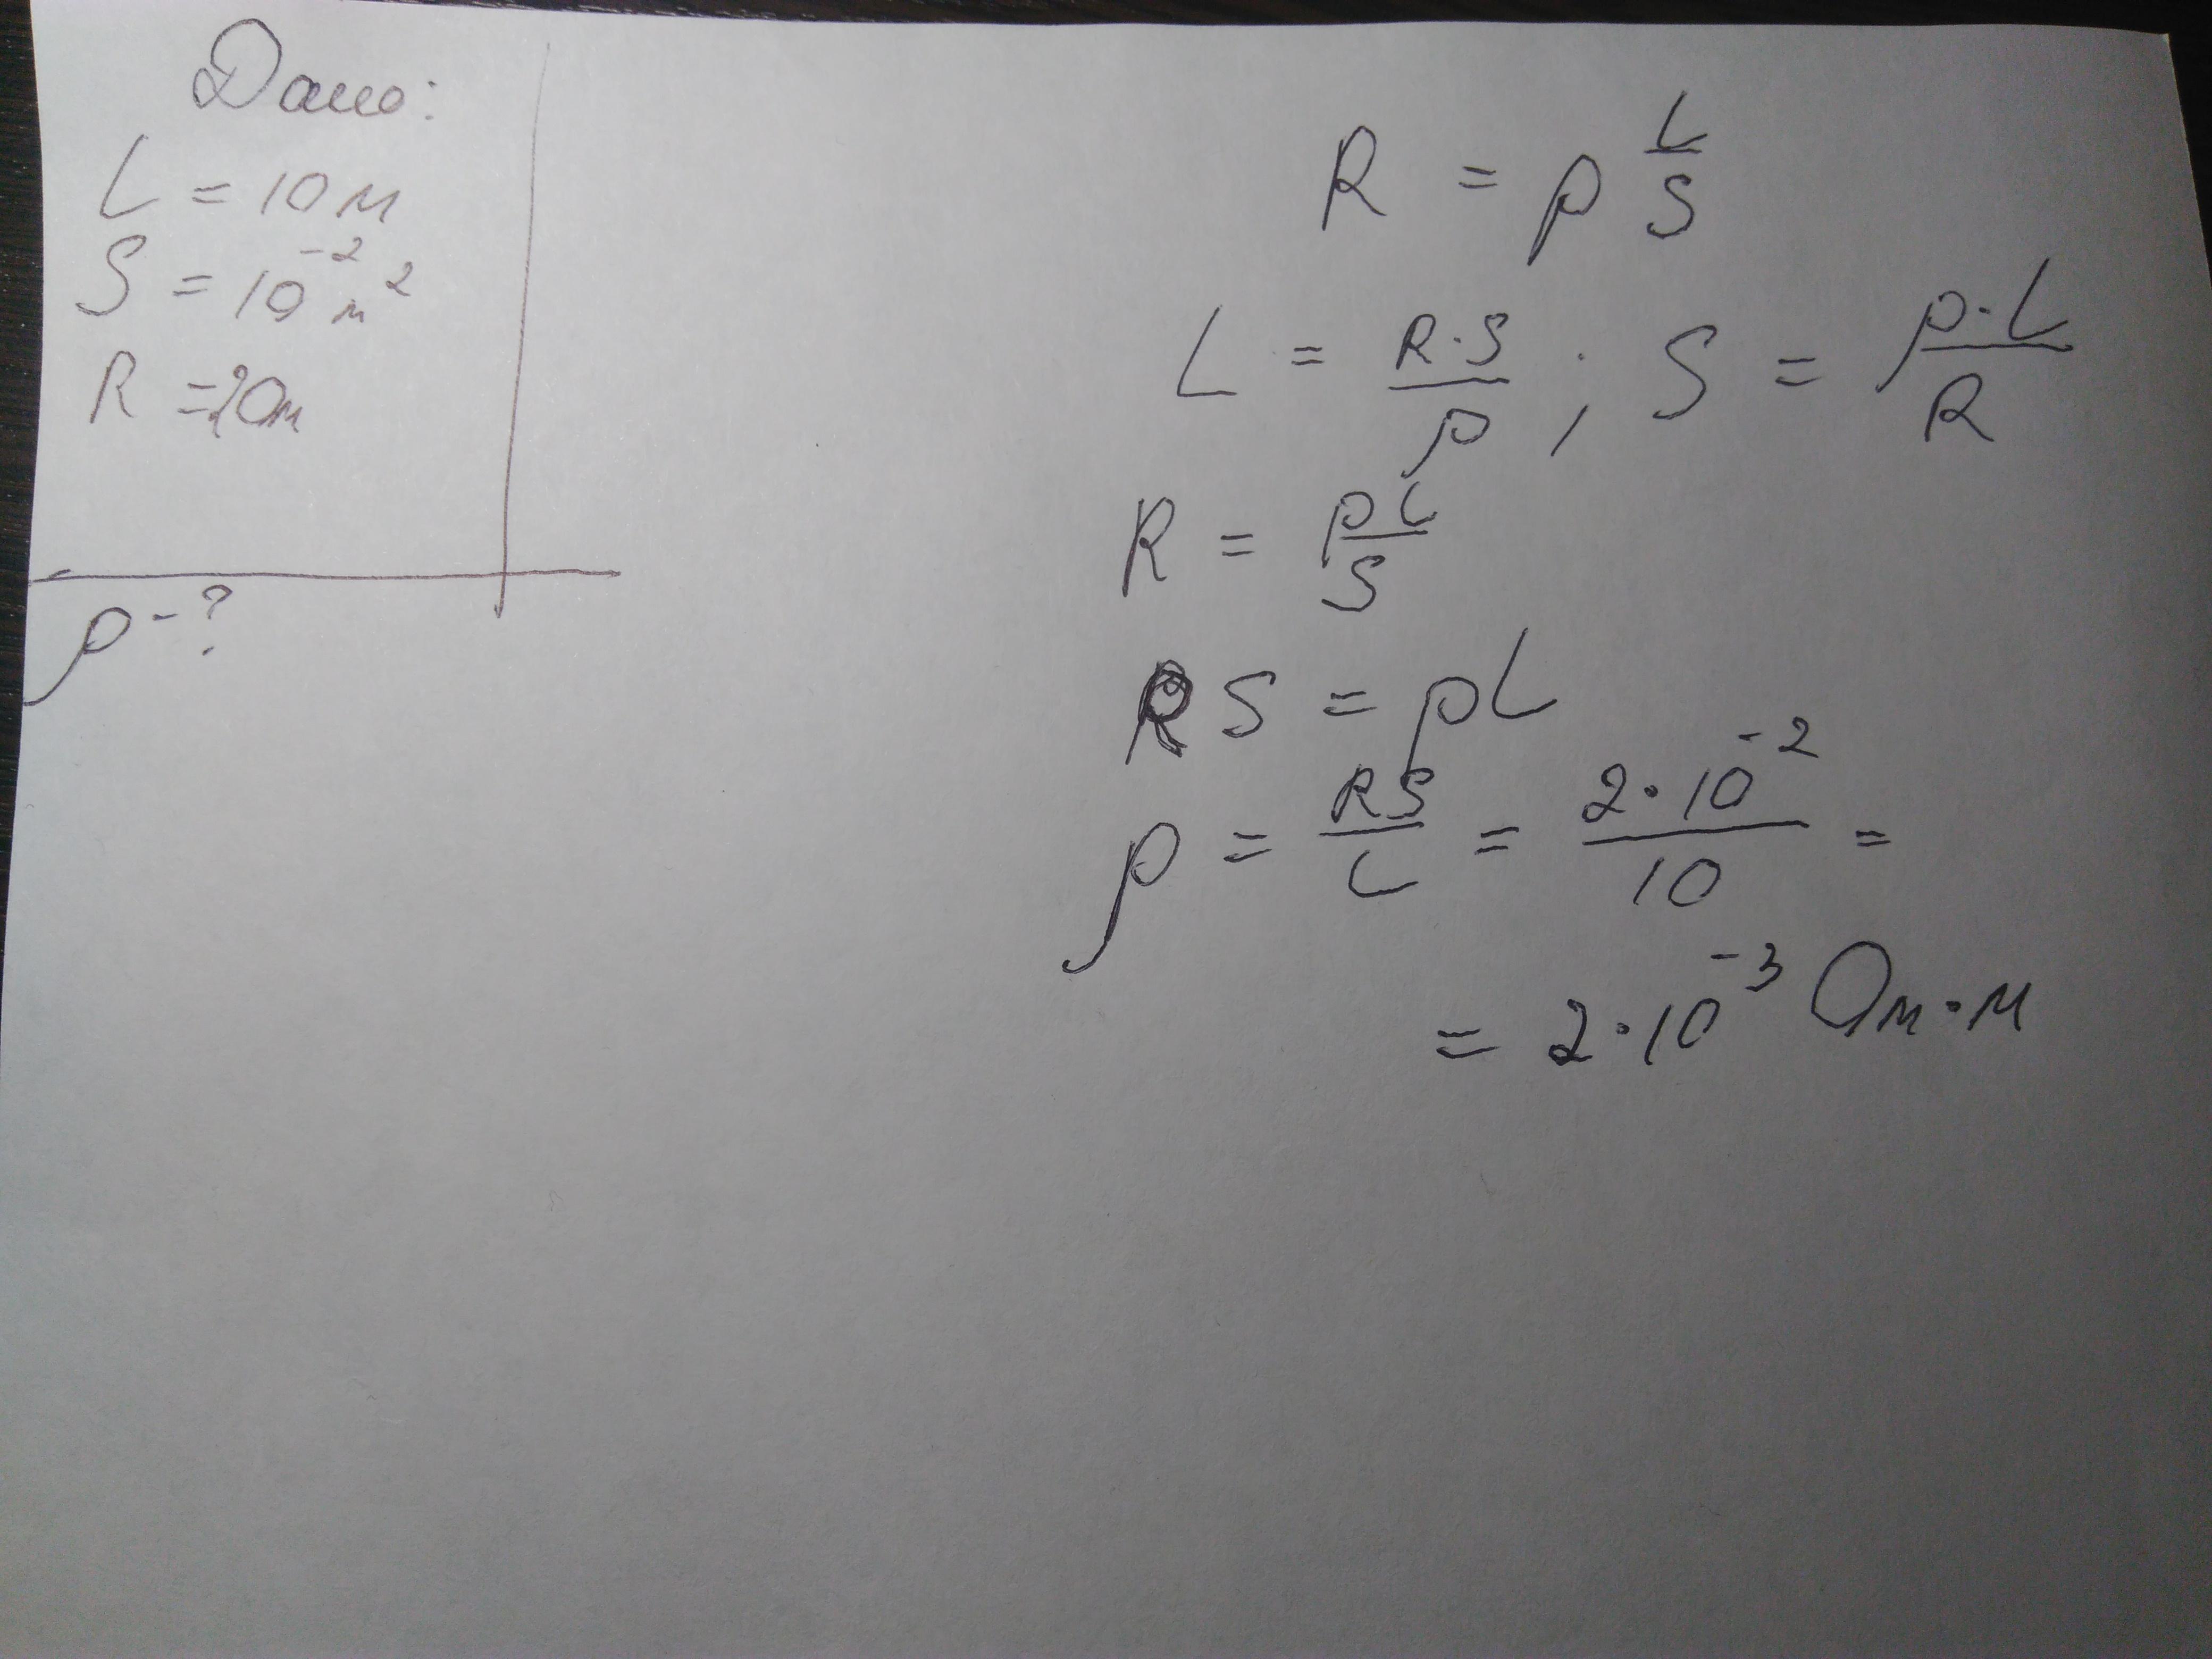 Дано:
L = 10 м
S = 10⁻² м²
R = 2 Ом
ρ - ?
R = ρ L/S
L = R·S/ρ ; S = ρ·L/R
R = ρL/S
RS = ρL
ρ = RS/L = 2·10⁻²/10 =
= 2·10⁻³ Ом·м